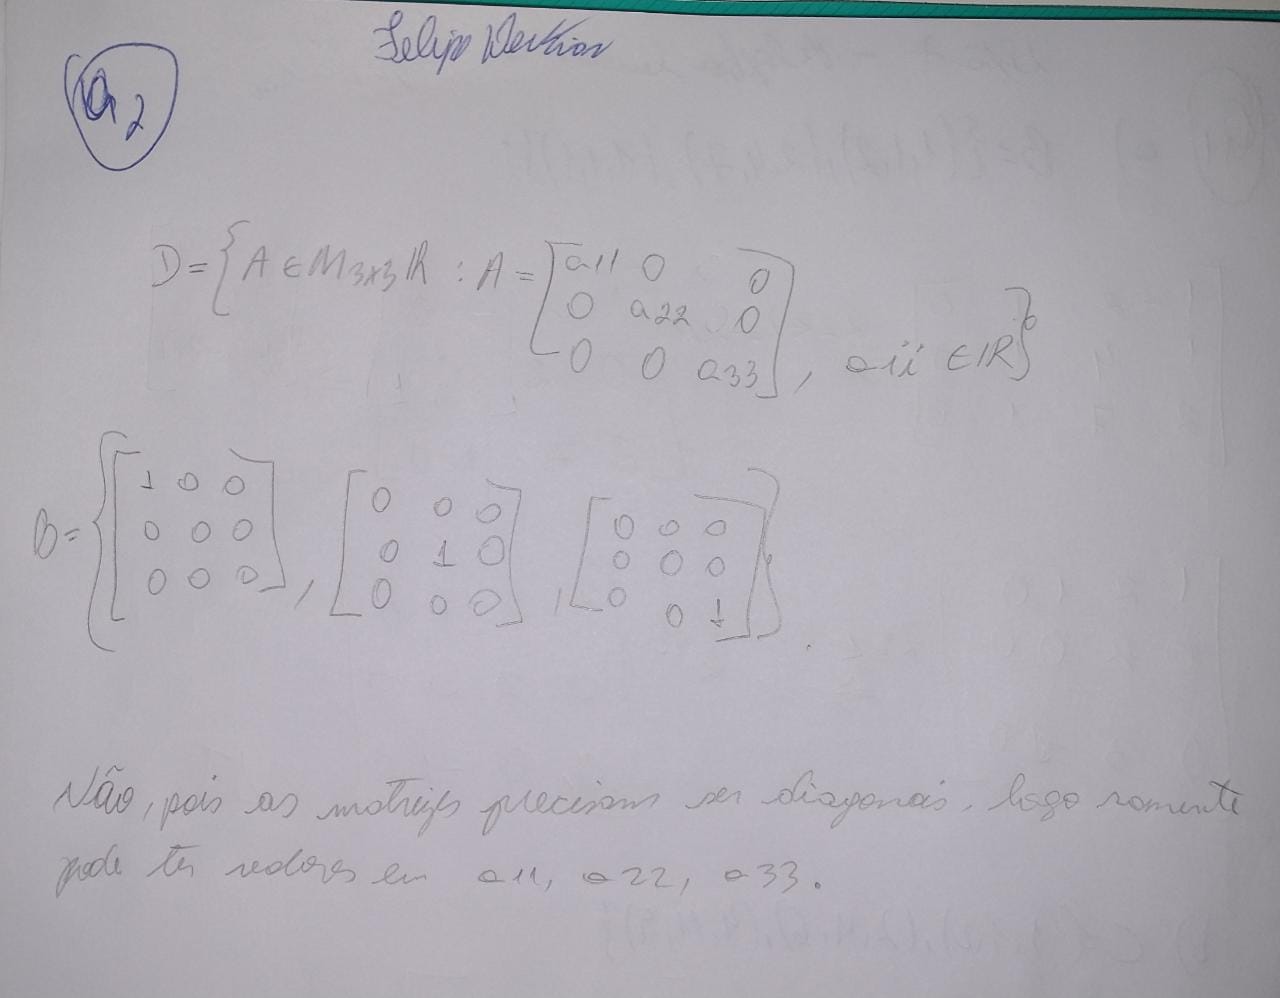 Felipe
Q2
D = { A ∈ M3x3 IR : A = [a11 0 0
0 a22 0
0 0 a33] , aii ∈ IR }
B = { [1 0 0
0 0 0
0 0 0] , [0 0 0
0 1 0
0 0 0] , [0 0 0
0 0 0
0 0 1] } .
Não, pois as matrizes precisam ser diagonais, logo somente
pode ter valores em a11, a22, a33.